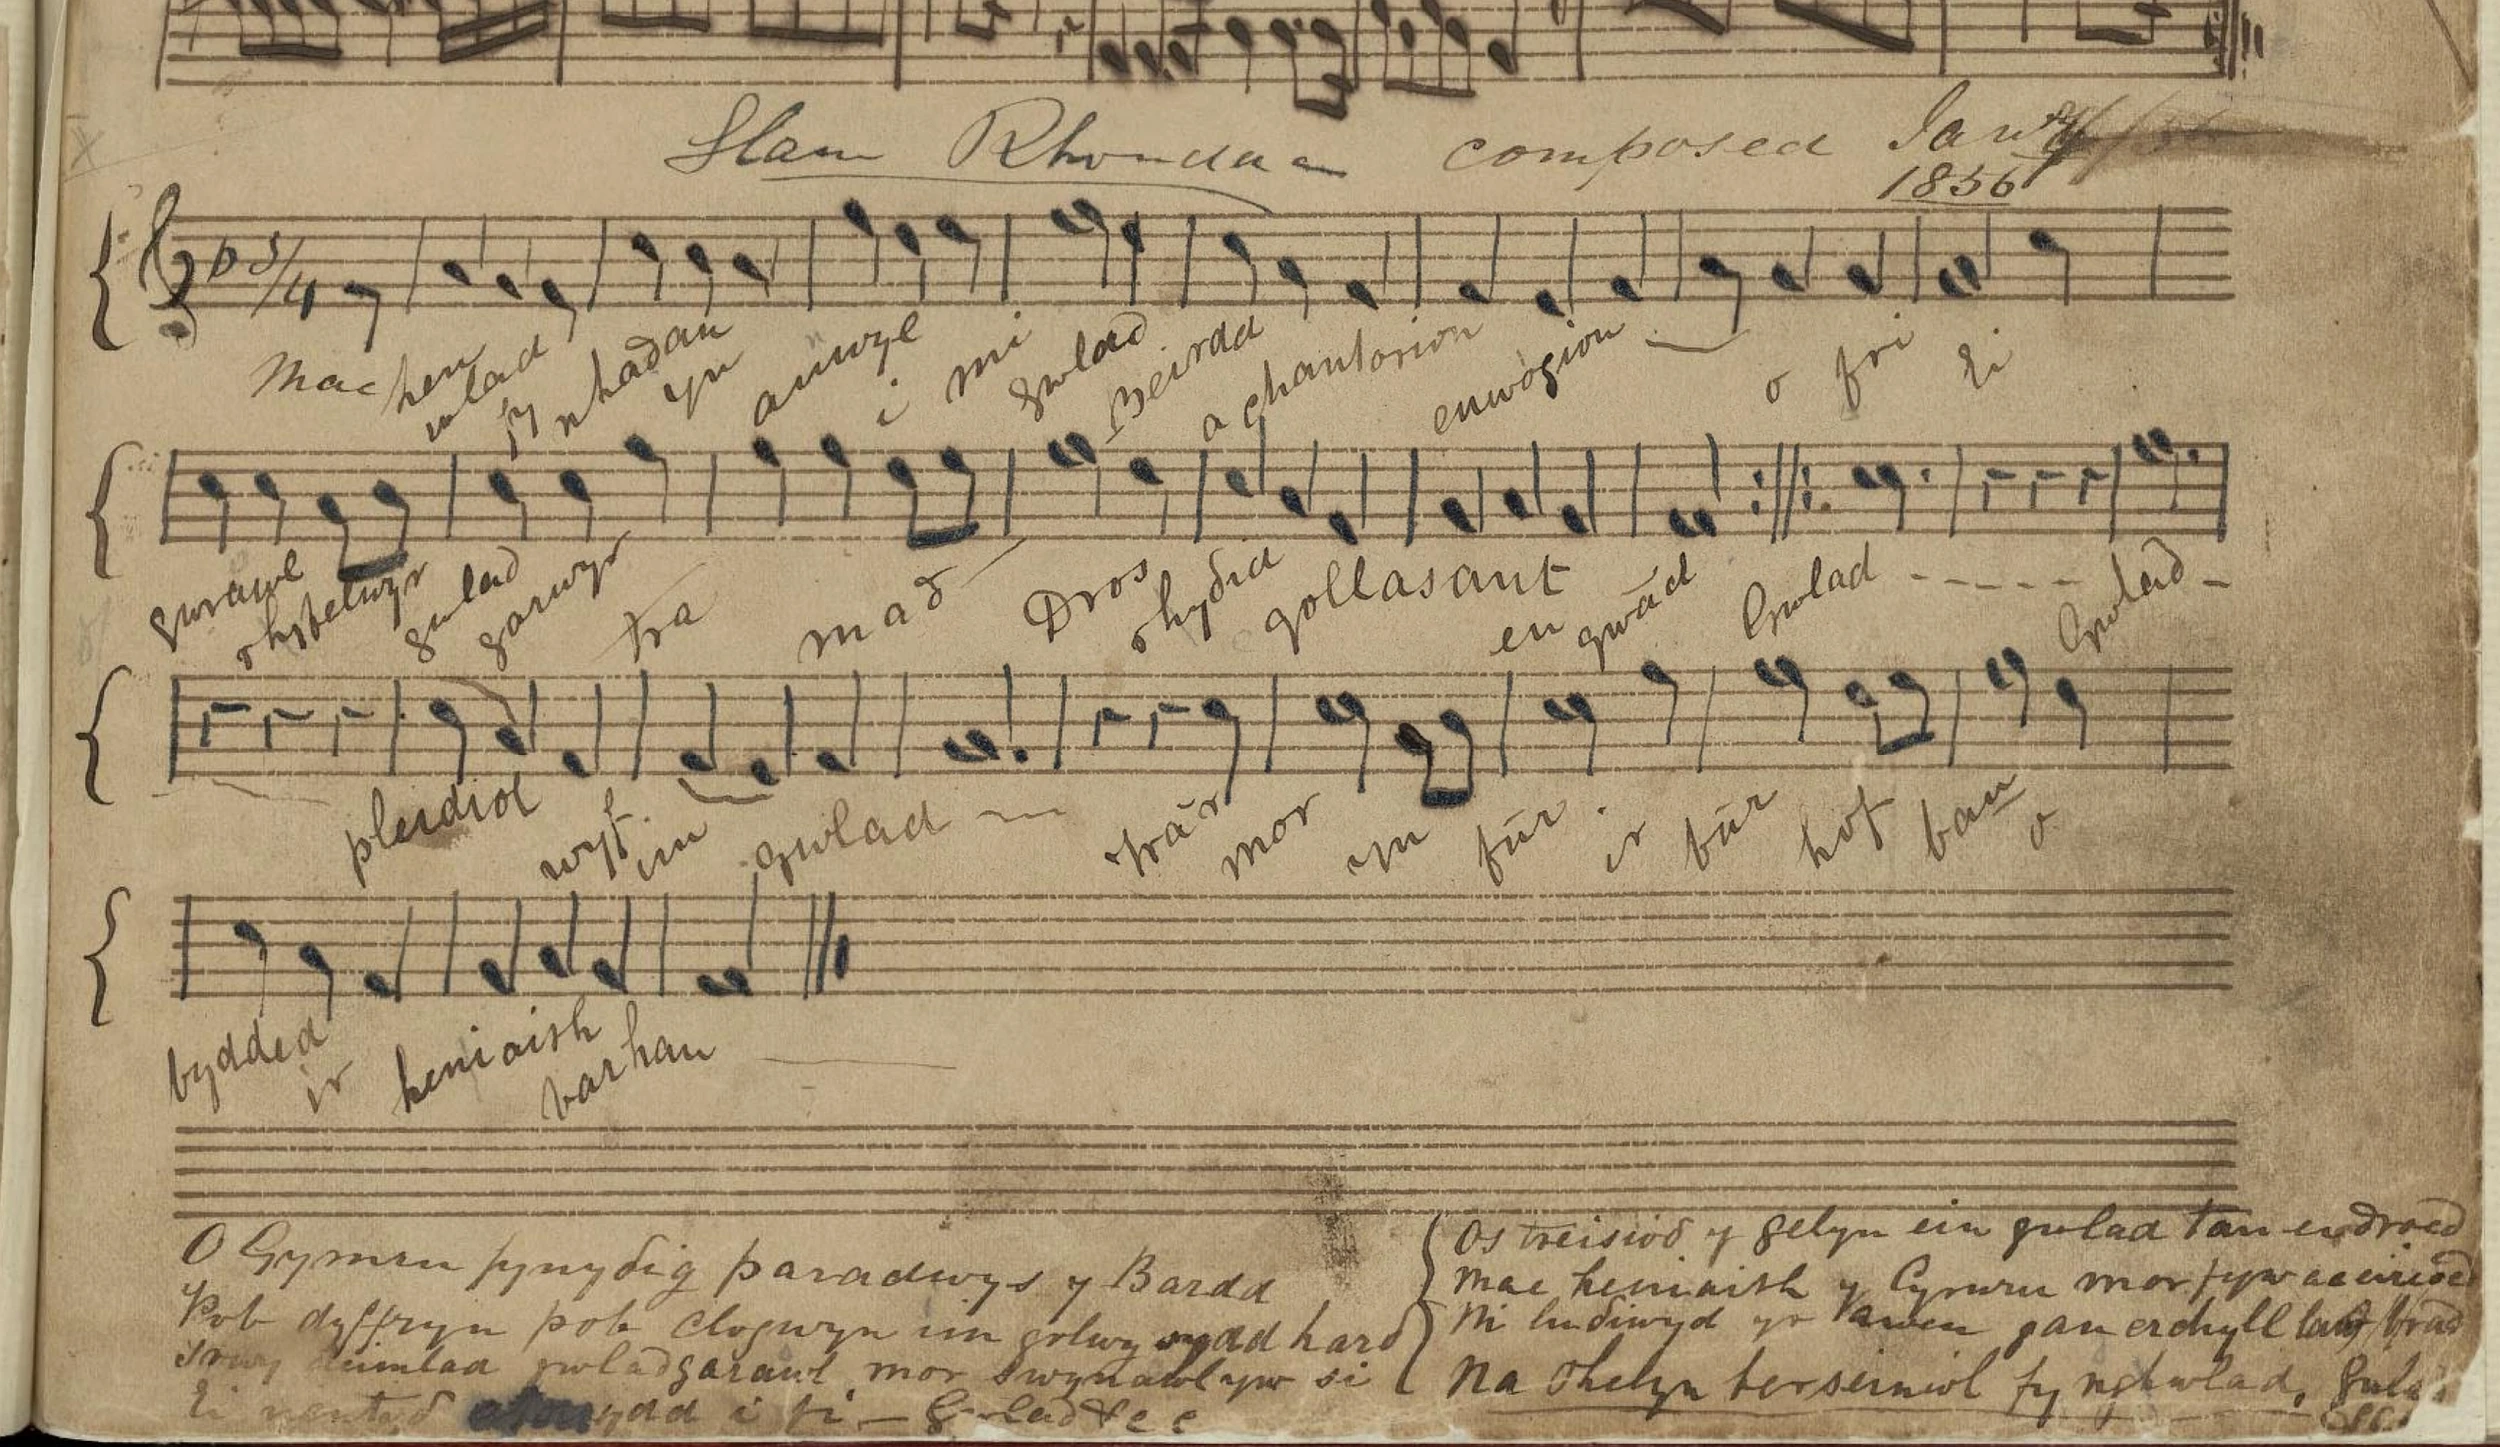 Glan Rhondda composed Jan
1856
3/4
Mae hen wlad fy nhadau yn anwyl i mi gwlad Beirdd a chantorion enwogion o fri Ei
gwrawl rhyfelwyr gwlad garwyr tra mad Dros rhydid gollasant eu gwâd Gwlad - - - - - Gwlad -
pleidiol wyf im gwlad trâ mor yn fûr ir bûr hof bau o
bydded ir heniaith barhau
O Gymru fynydig paradwys y Bardd
Pob dyffryn pob clogwyn im golwg sydd hard
trwy deimlad gwladgarawl mor swynawl yw si
Ei i fi - Gwlad &c
Os treisiod y gelyn ein gwlad tan eu droed
Mae heniaith y Cymru mor fyw ac erioed
Ni ludiwyd yr Awen gan erchyll brad
Na thelyn berseiniol fy nghwlad,